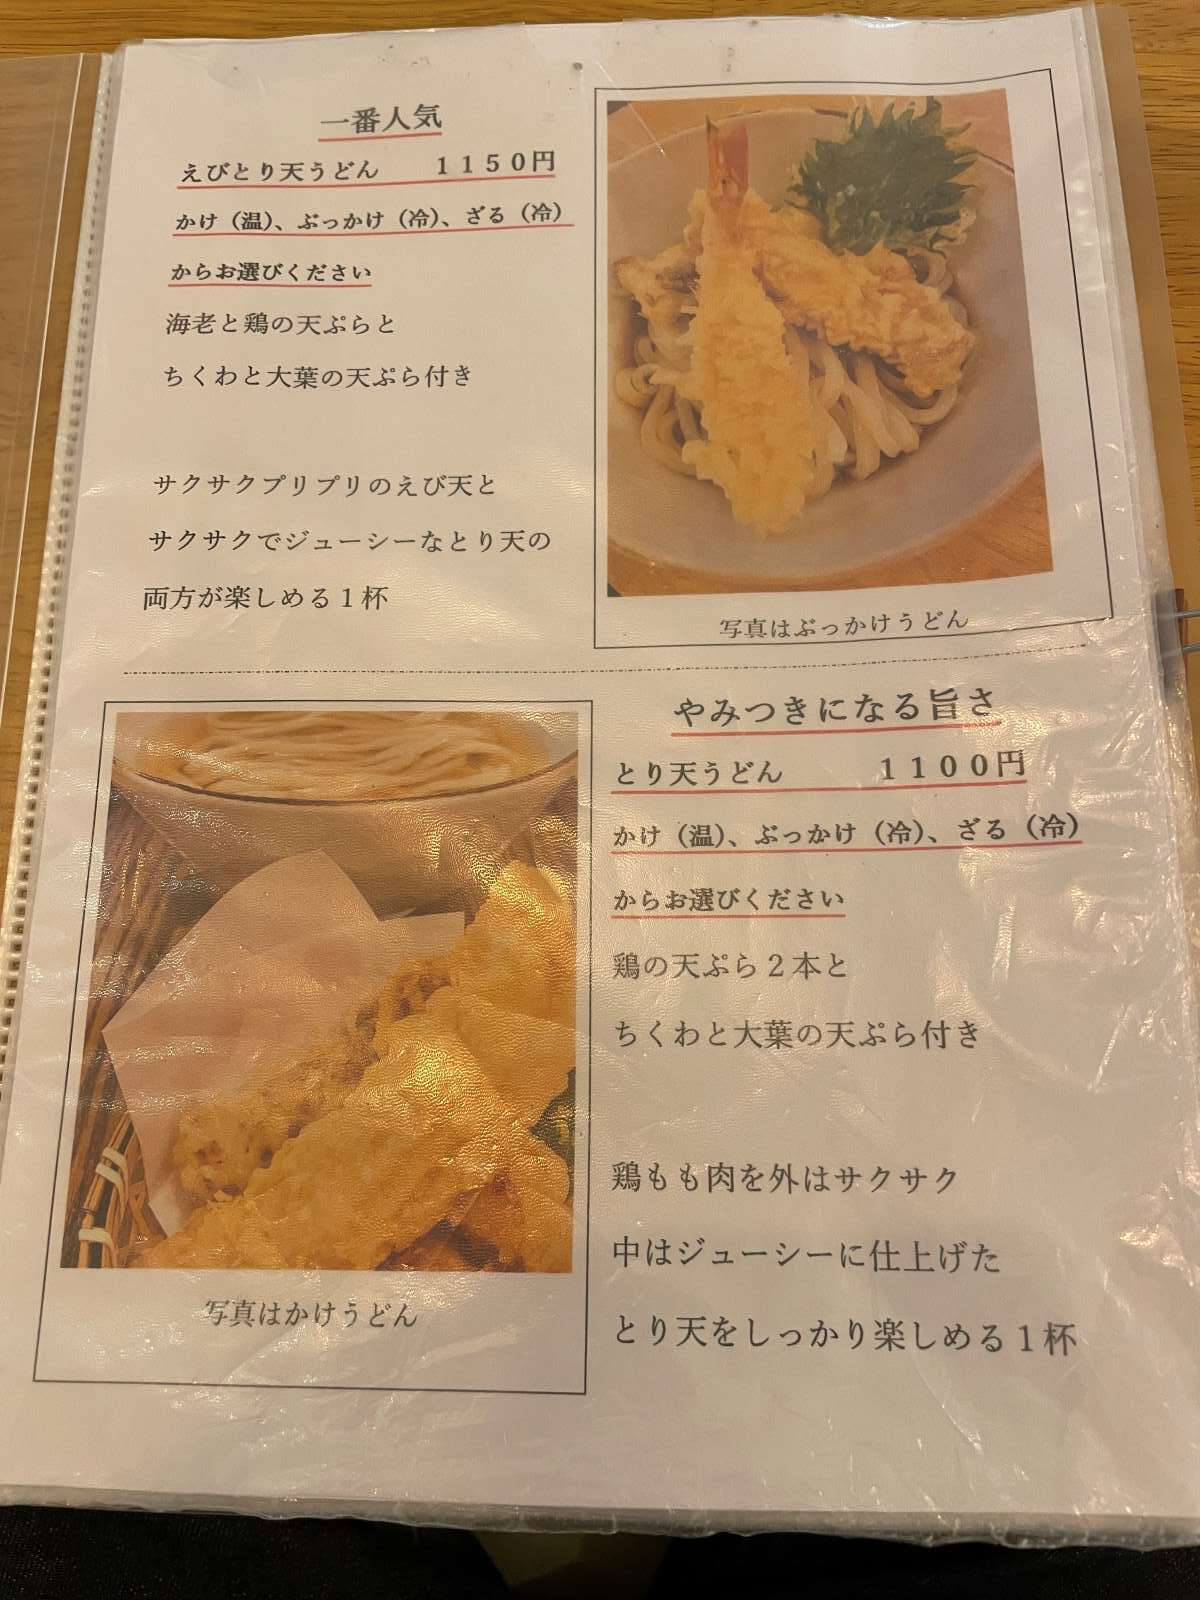 一番人気
えびとり天うどん　　１１５０円
かけ（温）、ぶっかけ（冷）、ざる（冷）
からお選びください
海老と鶏の天ぷらと
ちくわと大葉の天ぷら付き
サクサクプリプリのえび天と
サクサクでジューシーなとり天の
両方が楽しめる１杯
写真はぶっかけうどん
やみつきになる旨さ
とり天うどん　　　１１００円
かけ（温）、ぶっかけ（冷）、ざる（冷）
からお選びください
鶏の天ぷら２本と
ちくわと大葉の天ぷら付き
鶏もも肉を外はサクサク
中はジューシーに仕上げた
とり天をしっかり楽しめる１杯
写真はかけうどん